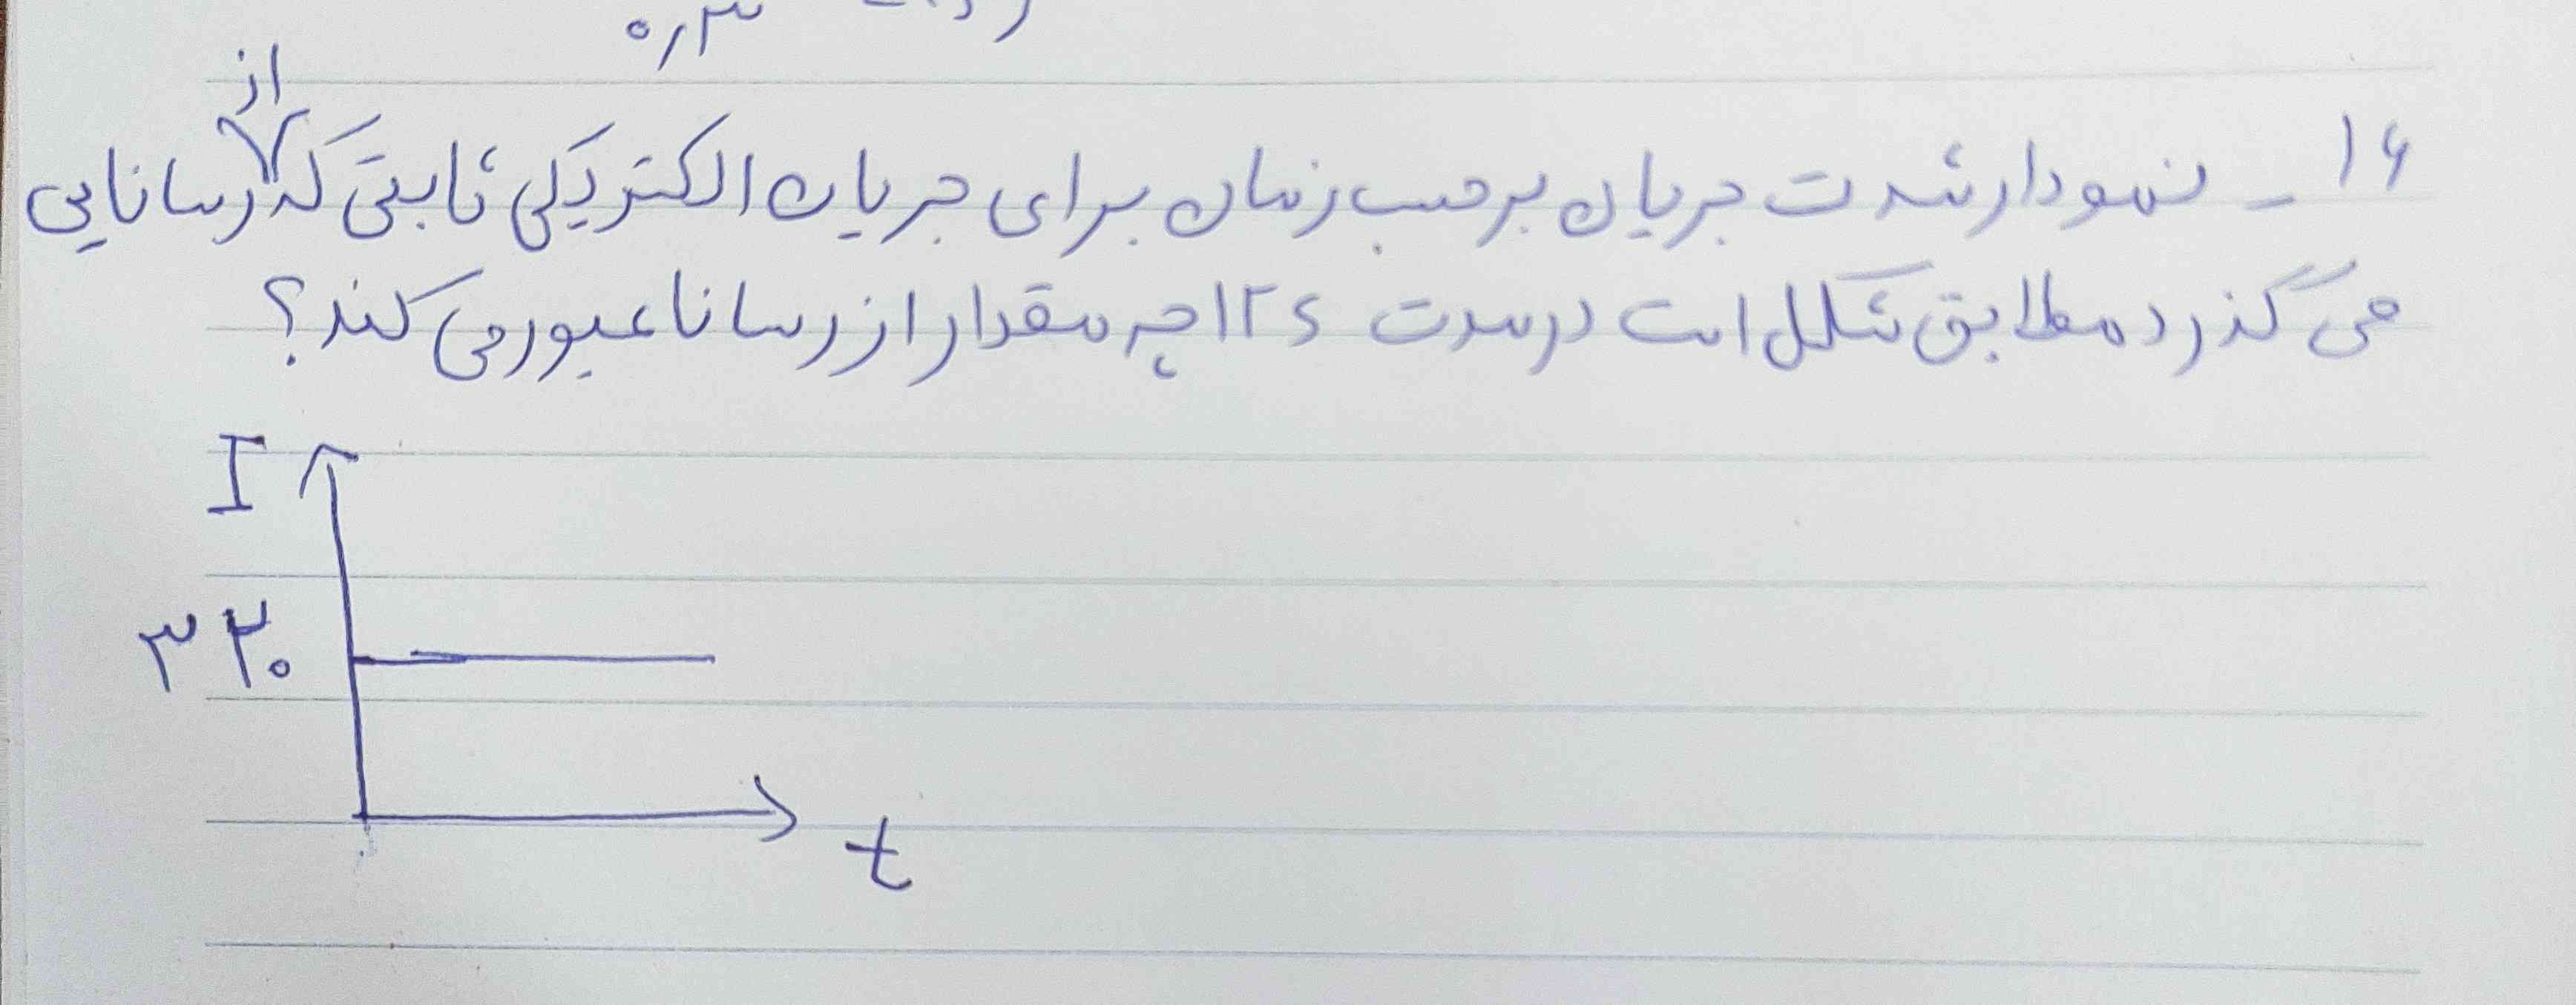 ۰٫۳
از
۱۶ - نمودار شدت جریان برحسب زمان برای جریان الکتریکی ثابتی که رسانایی
می گذرد مطابق شکل است در مدت ۱۲s چه مقدار از رسانا عبور می کند؟
I
۳۲۰
t